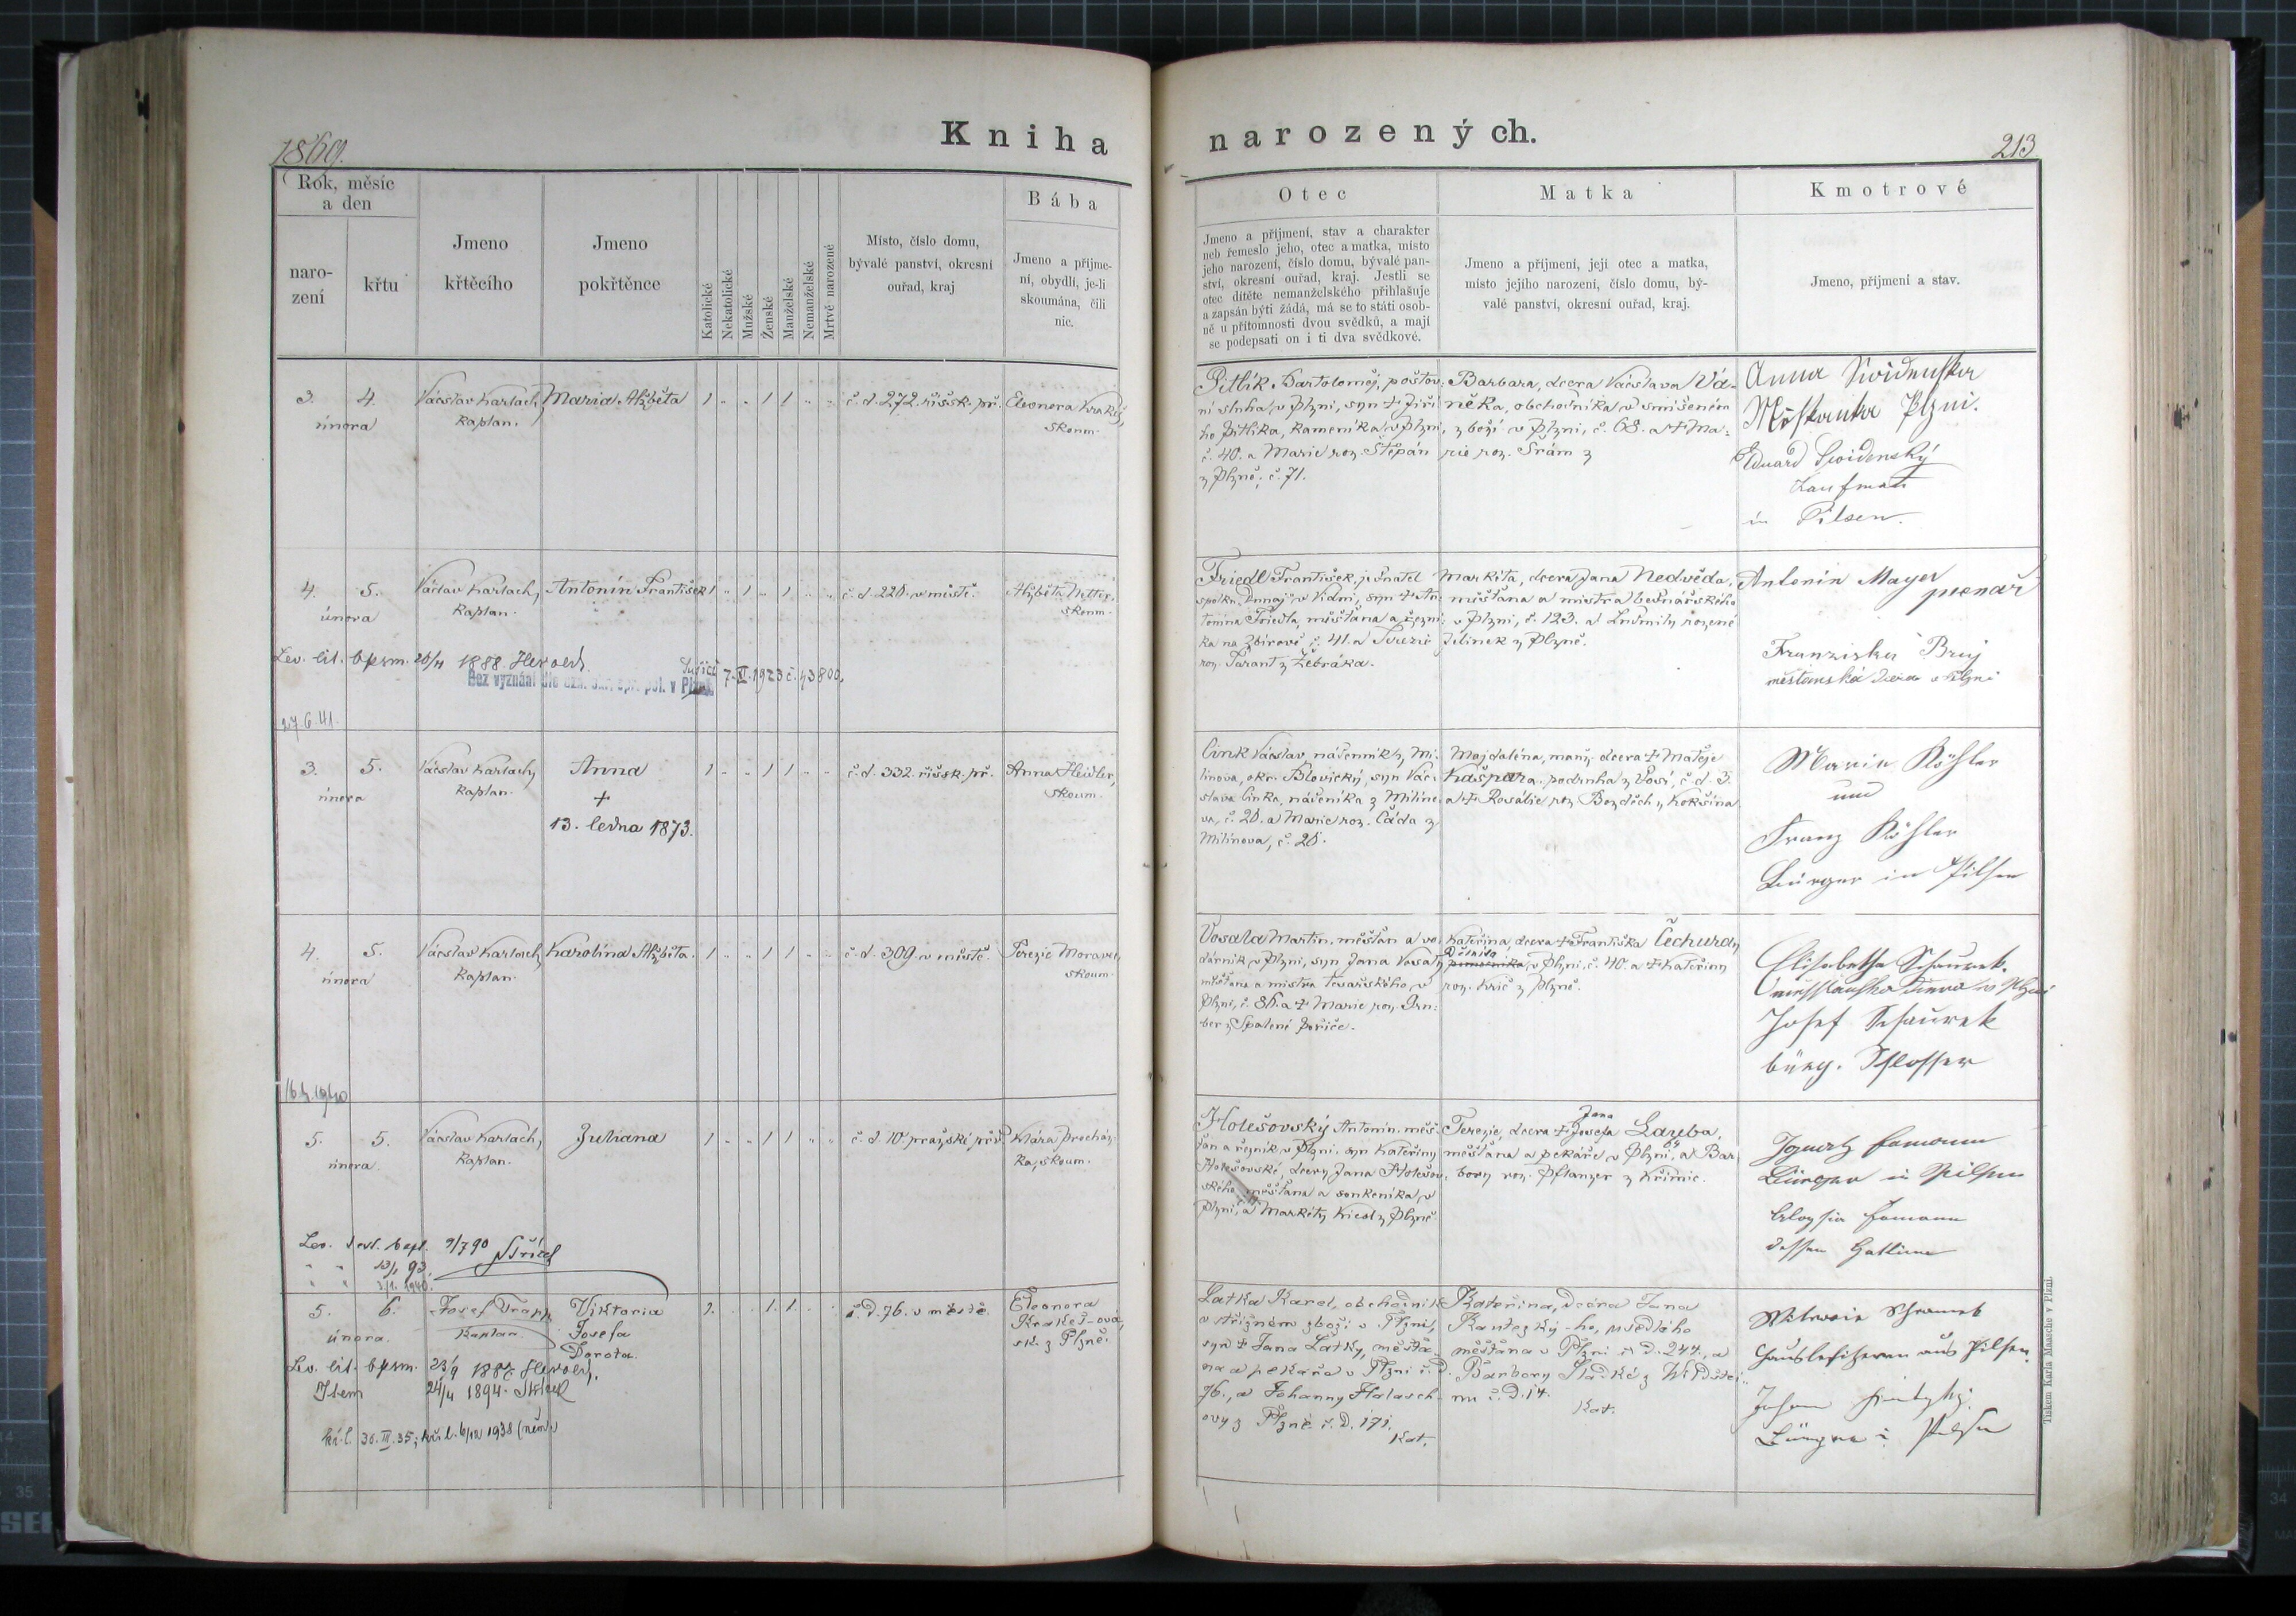 1869.
Kniha
narozených.
213
Rok, měsíc
a den
naro-
zení
křtu
Jmeno
křtěcího
Jmeno
pokřtěnce
Katolické
Nekatolické
Mužské
Ženské
Manželské
Nemanželské
Mrtvě narozené
Místo, číslo domu,
bývalé panství, okresní
ouřad, kraj
Bába
Jmeno a přijme-
ní, obydlí, je-li
skoumána, čili
nic.
Otec
Jmeno a příjmení, stav a charakter
neb řemeslo jeho, otec a matka, místo
jeho narození, číslo domu, bývalé pan-
ství, okresní ouřad, kraj. Jestli se
otec dítěte nemanželského přihlašuje
a zapsán býti žádá, má se to státi osob-
ně u přítomnosti dvou svědků, a mají
se podepsati on i ti dva svědkové.
Matka
Jmeno a příjmení, její otec a matka,
místo jejího narození, číslo domu, bý-
valé panství, okresní ouřad, kraj.
Kmotrové
Jmeno, příjmení a stav.
3. 4.
února
Václav Karlach,
Kaplan.
Maria Alžběta
1 " " 1 1 " "
č. d. 272. říšsk. př.
Eleonora
Skoum.
Pitlík Bartoloměj, poštov:
ní sluha, v Plzni, syn + Jiří
ho Pitlíka, kameníka v Plzni,
č. 40. a Marie roz. Štěpán
z Plzně, č. 71.
Barbara, dcera Václava Vá-
něka, obchodníka v smíšeném
zboží v Plzni, č. 68. a + Ma:
rie roz. Šrám z
Anna Swidenska
Měšťanka Plzni.
Eduard Swidenský
Kaufmann
in Pilsen.
4. 5.
února
Václav Karlach,
Kaplan.
Antonín František
1 " 1 " 1 " "
č. d. 220. v městě.
Alžběta
skoum.
Lev. lit. bpsm. 20/4 1888. Herold.
Bez vyznání dle ozn. okr. spr. pol. v Plzni
Sušici 7. VI. 1923 č. 43800.
27.6.41.
Friedl František, jednatel
spolku "Dunaj" v Vídni, syn + An:
tonína Friedla, měšťana a řezní:
ka na Zbirově č. 41. a Terezie
roz. Tarant z Žebráka.
Markéta, dcera Jana Nedvěda,
měšťana a mistra bednářského
v Plzni, č. 123. a Ludmily rozené
Jelinek z Plzně.
Antonín Mayer
Franziska
městanská dcera v Plzni
3. 5.
února
Václav Karlach,
Kaplan.
Anna
+
13. ledna 1873.
1 " " 1 1 " "
č. d. 332. říšsk. př.
Anna Heidler,
skoum.
Cink Václav, nádenník z Mi:
línova, okr. Blovický, syn Vác:
slava Cinka, nádeníka z Milíno
va, č. 20. a Marie roz. Čáda z
Milínova, č. 20.
Majdaléna, manž. dcera + Matěje
Kašpara, podruha z Vosí, č. d. 3.
a + Rosálie roz. Bozděch z Kokšína.
Marie Köhler
und
Franz Köhler
Bürger in Pilsen
4. 5.
února
Václav Karlach,
Kaplan.
Karolína Alžběta.
1 " " 1 1 " "
č. d. 309. v městě.
Terezie Moravec,
skoum.
16.4.1940
Vosala Martin, měšťan a vo:
dárník v Plzni, syn Jana Vosaly,
měšťana a mistra tesařského, v
Plzni, č. 86. a + Marie roz. Gru:
ber z Spálené Poříče.
Kateřina, dcera + Františka Čechury,
Dělníka
v Plzni, č. 40. a + Kateřiny
roz. Krič z Plzně.
Elisabetha Schaurek.
Josef Schaurek
bürg. Schlosser
5. 5.
února.
Václav Karlach,
Kaplan.
Juliana
1 " " 1 1 " "
č. d. 10. pražské před.
Klára Procház-
ka, skoum.
Lev. test. bapt. 9/7 90 Střízel
" " 13/1 93.
" " 3/1. 1940.
Holešovský Antonín, měš:
ťan a řezník v Plzni, syn Kateřiny
Holešovské, dcery Jana Holešov:
ského, měšťana a soukeníka, v
Plzni, a Markéty Kriesl z Plzně.
Jana
Terezie, dcera + Josefa Lauba,
měšťana a pekaře v Plzni, a Bar
bory roz. Pflanzer z Křimic.
Ignatz
Bürger in Pilsen
Aloysia
dessen Gattinn
5. 6.
února.
Josef Trapp
Kaplan.
Viktoria
Josefa
Dorota.
1. " " 1. 1. " "
č. D. 76. v městě.
Eleonora
Krakeš-ová,
sk. z Plzně.
Lev. lit. bpsm. 23/9 1887. Herold.
Item 24/4 1894.
kř. l. 30. III. 35; kř. l. 6/12 1938 (něm.)
Latka Karel, obchodník
v střižném zboží v Plzni,
syn + Jana Látky, měšťa-
na a pekaře v Plzni č. D.
76., a Johanny Halasch-
ovy z Plzně č. D. 171.
Kat.
Kateřina, dcera Jana
Kautezký-ho, usedlého
měšťana v Plzni č. D. 244., a
Barbory Sladké z
č. D. 14.
Kat.
Hausbesitzerin aus Pilsen.
Johann
Bürger in Pilsen
Tiskem Karla Maasche v Plzni.